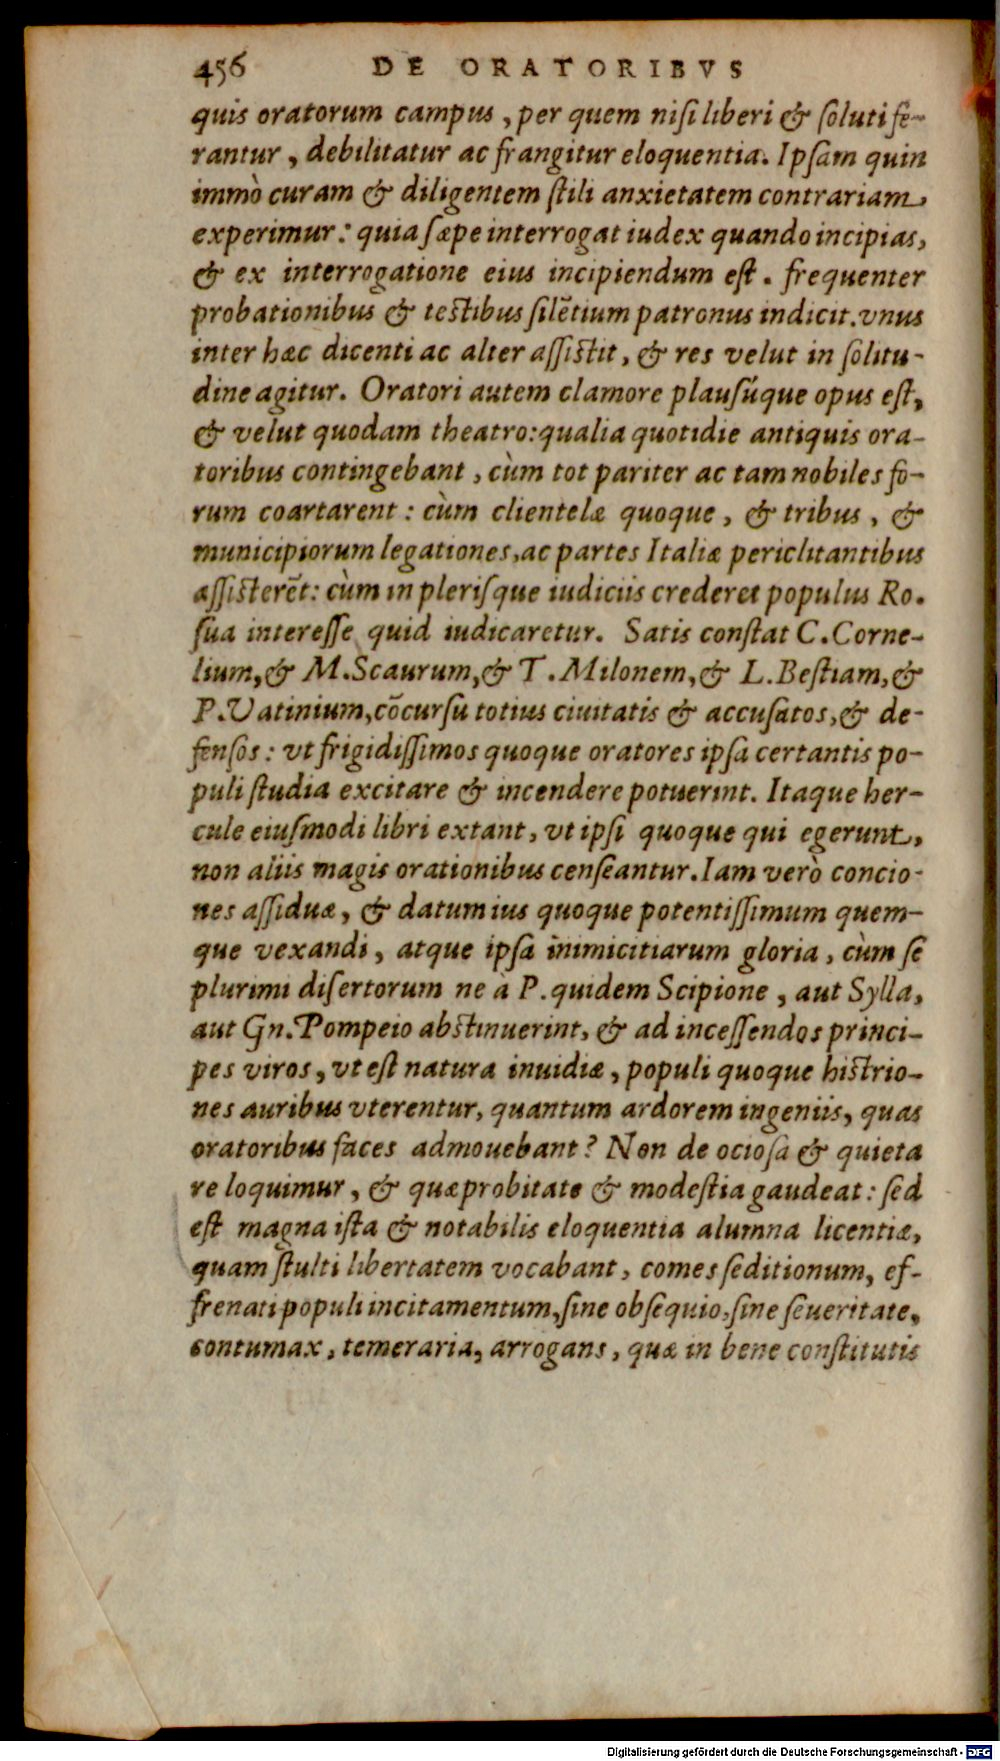 456 DE ORATORIBVS
quis oratorum campus, per quem nisi liberi & soluti fe-
rantur, debilitatur ac frangitur eloquentia. Ipsam quin
immò curam & diligentem stili anxietatem contrariam
experimur: quia sæpe interrogat iudex quando incipias,
& ex interrogatione eius incipiendum est. frequenter
probationibus & testibus silẽtium patronus indicit. vnus
inter hæc dicenti ac alter assistit, & res velut in solitu-
dine agitur. Oratori autem clamore plausúque opus est,
& velut quodam theatro: qualia quotidie antiquis ora-
toribus contingebant, cùm tot pariter ac tam nobiles fo-
rum coartarent: cùm clientelæ quoque, & tribus, &
municipiorum legationes, ac partes Italiæ periclitantibus
assisterẽt: cùm in plerisque iudiciis crederet populus Ro.
sua interesse quid iudicaretur. Satis constat C. Corne-
lium, & M. Scaurum, & T. Milonem, & L. Bestiam, &
P. Vatinium, cõcursu totius ciuitatis & accusatos, & de-
fensos: vt frigidissimos quoque oratores ipsa certantis po-
puli studia excitare & incendere potuerint. Itaque her-
cule eiusmodi libri extant, vt ipsi quoque qui egerunt,
non aliis magis orationibus censeantur. Iam verò concio-
nes assiduæ, & datum ius quoque potentissimum quem-
que vexandi, atque ipsa inimicitiarum gloria, cùm se
plurimi disertorum ne à P. quidem Scipione, aut Sylla,
aut Gn. Pompeio abstinuerint, & ad incessendos princi-
pes viros, vt est natura inuidiæ, populi quoque histrio-
nes auribus vterentur, quantum ardorem ingeniis, quas
oratoribus faces admouebant? Non de ociosa & quieta
re loquimur, & quæ probitate & modestia gaudeat: sed
est magna ista & notabilis eloquentia alumna licentiæ,
quam stulti libertatem vocabant, comes seditionum, ef-
frenati populi incitamentum, sine obsequio, sine seueritate,
contumax, temeraria, arrogans, quæ in bene constitutis
Digitalisierung gefördert durch die Deutsche Forschungsgemeinschaft - DFG